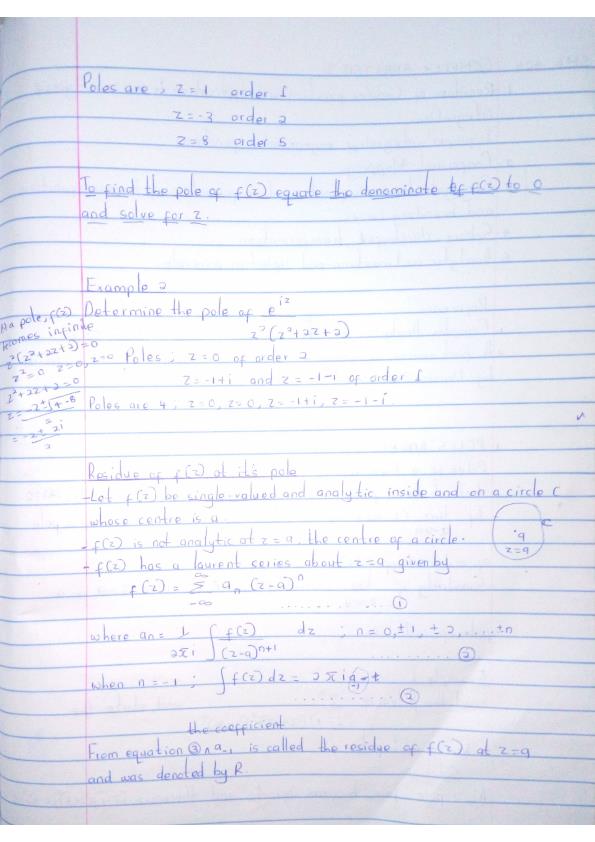 Poles are ; z = 1 order 1
z = -3 order 2
z = 8 order 5
To find the pole of f(z) equate the denominate of f(z) to 0
and solve for z.
Example 2
Determine the pole of e^{iz}
z²(z²+2z+2)
At a pole, f(z)
becomes infinite
z²(z²+2z+2)=0
z²=0 z=0, z=0
z²+2z+2=0
z = -2±√4-8
2
= -2±2i
2
Poles ; z=0 of order 2
z = -1+i and z = -1-i of order 1
Poles are 4 ; z=0, z=0, z=-1+i, z=-1-i
Residue of f(z) at it's pole
- Let f(z) be single-valued and analytic inside and on a circle C
whose centre is a.
- f(z) is not analytic at z=a, the centre of a circle.
C
a
z=a
- f(z) has a laurent series about z=a given by
f(z) = ∞Σ-∞ aₙ (z-a)ⁿ ............ ①
where an = 1/2πi ∫ f(z)/(z-a)ⁿ⁺¹ dz ; n = 0, ±1, ±2, .....±n
............ ②
when n = -1 ; ∫f(z)dz = 2πi a₋₁
............ ②
the coefficient
From equation ③ ∧ a₋₁ is called the residue of f(z) at z=a
and was denoted by R.